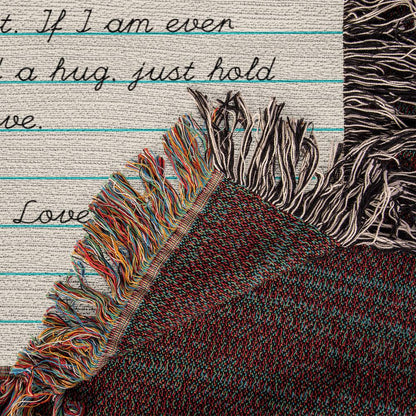 t. If I am ever
a hug. just hold
ve.
Love